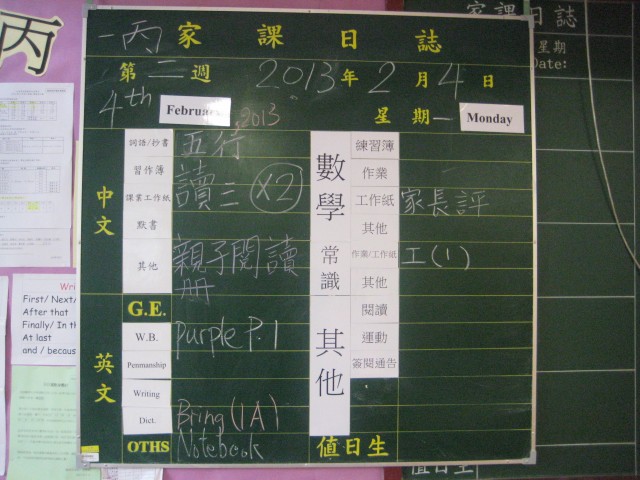 丙
一丙 家課日誌
第二週 2013年2月4日
4th February 2013 星期一 Monday
中文
詞語/抄書 五行
習作簿 讀三 ×2
課業工作紙
默書
其他 親子閱讀冊
英文
G.E.
W.B. purple P. 1
Penmanship
Writing
Dict. Bring (1A)
OTHS Notebook
數學
練習簿
作業
工作紙 家長評
其他
常識
作業/工作紙 工(1)
其他
其他
閱讀
運動
簽閱通告
值日生
家課日誌
星期
Date:
值日生
First/ Next/
After that
Finally/ In th
At last
and / becaus